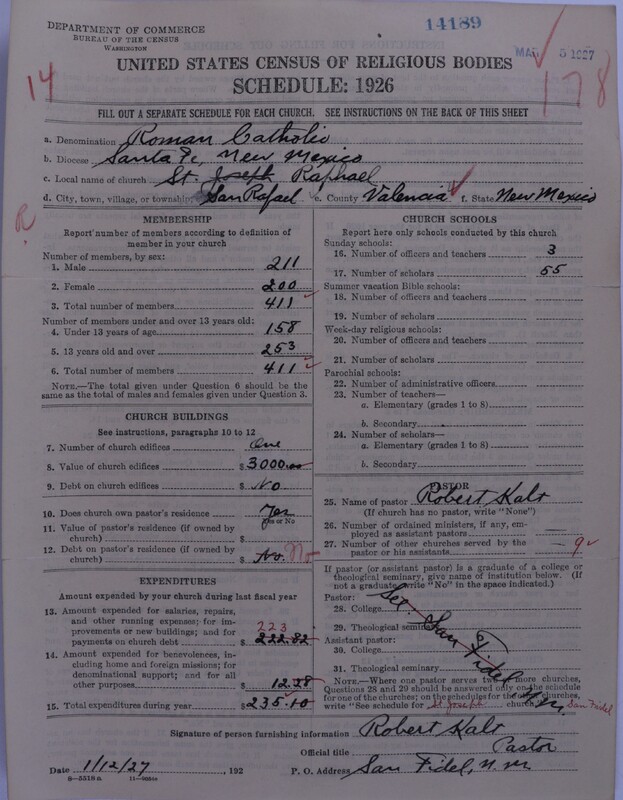 DEPARTMENT OF COMMERCE
BUREAU OF THE CENSUS
WASHINGTON
14189
MAR 5 1927
14
178
UNITED STATES CENSUS OF RELIGIOUS BODIES
SCHEDULE: 1926
FILL OUT A SEPARATE SCHEDULE FOR EACH CHURCH. SEE INSTRUCTIONS ON THE BACK OF THIS SHEET
a. Denomination Roman Catholic
b. Diocese Santa Fe, New Mexico
c. Local name of church St. Joseph Raphael
d. City, town, village, or township San Rafael e. County Valencia f. State New Mexico
R
MEMBERSHIP
Report number of members according to definition of member in your church
Number of members, by sex:
1. Male 211
2. Female 200
3. Total number of members 411
Number of members under and over 13 years old:
4. Under 13 years of age 158
5. 13 years old and over 253
6. Total number of members 411
NOTE.—The total given under Question 6 should be the
same as the total of males and females given under Question 3.
CHURCH BUILDINGS
See instructions, paragraphs 10 to 12
7. Number of church edifices One
8. Value of church edifices $ 3000.00
9. Debt on church edifices $ No
10. Does church own pastor's residence Yes
Yes or No
11. Value of pastor's residence (if owned by
church) $
12. Debt on pastor's residence (if owned by
church) $ No. No
EXPENDITURES
Amount expended by your church during last fiscal year
13. Amount expended for salaries, repairs,
and other running expenses; for im-
provements or new buildings; and for
payments on church debt $ 222.82
223
14. Amount expended for benevolences, in-
cluding home and foreign missions; for
denominational support; and for all
other purposes 12.28
15. Total expenditures during year $ 235.10
CHURCH SCHOOLS
Report here only schools conducted by this church
Sunday schools:
16. Number of officers and teachers 3
17. Number of scholars 55
Summer vacation Bible schools:
18. Number of officers and teachers
19. Number of scholars
Week-day religious schools:
20. Number of officers and teachers
21. Number of scholars
Parochial schools:
22. Number of administrative officers
23. Number of teachers—
a. Elementary (grades 1 to 8)
b. Secondary
24. Number of scholars—
a. Elementary (grades 1 to 8)
b. Secondary
PASTOR
25. Name of pastor Robert Kalt
(If church has no pastor, write "None")
26. Number of ordained ministers, if any, em-
ployed as assistant pastors —
27. Number of other churches served by the
pastor or his assistants — 9
If pastor (or assistant pastor) is a graduate of a college or
theological seminary, give name of institution below. (If
not a graduate, write "No" in the space indicated.)
Pastor:
28. College
29. Theological seminary
See San Fidel N.M.
Assistant pastor:
30. College
31. Theological seminary
NOTE.—Where one pastor serves two or more churches,
Questions 28 and 29 should be answered only on the schedule
for one of the churches; on the schedules for the other churches,
write "See schedule for St Joseph church, San Fidel
Signature of person furnishing information Robert Kalt
Official title Pastor
Date 1/12/27, 192 P. O. Address San Fidel, N.M.